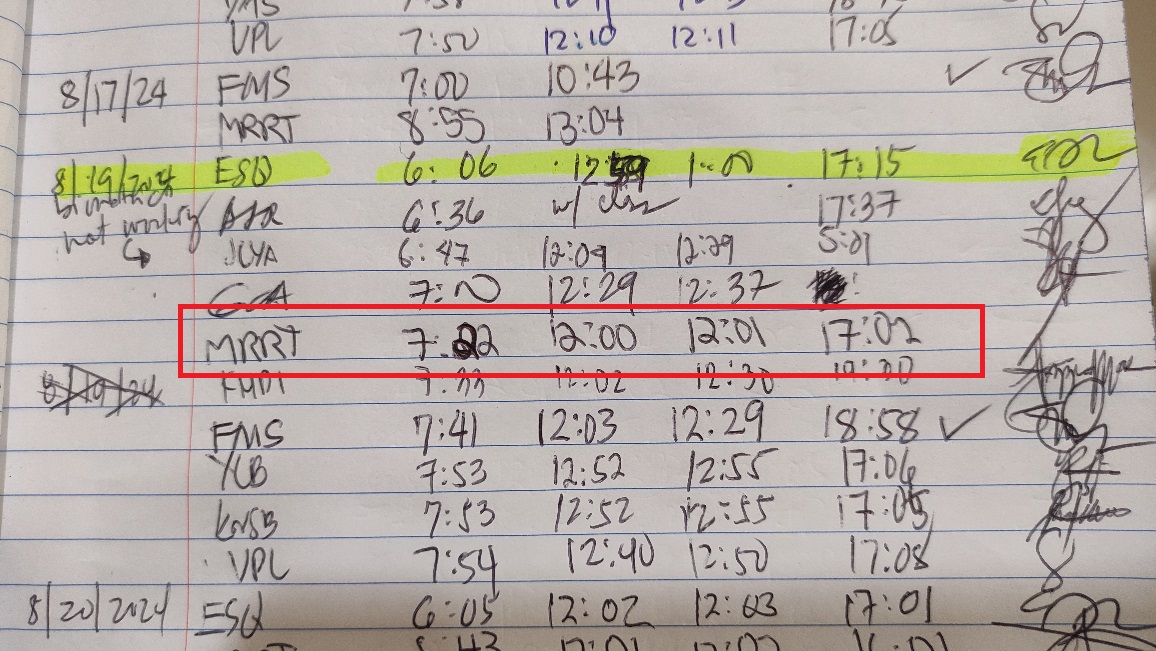 VPL 7:50 12:10 12:11 17:05
8/17/24 FMS 7:00 10:43 ✓
MRRT 8:55 13:04
8/19/2024 ESQ 6:06 12:59 1:00 17:15
not working 6:36 w/ class 17:37
JCYA 6:47 12:09 12:29 5:21
7:00 12:29 12:37
MRRT 7:22 12:00 12:01 17:02
8/19/24 7:33 12:02 12:30
FMS 7:41 12:03 12:29 18:58 ✓
YCB 7:53 12:52 12:55 17:06
7:53 12:52 12:55 17:05
VPL 7:54 12:40 12:50 17:08
8/20/2024 ESQ 6:05 12:02 12:03 17:01